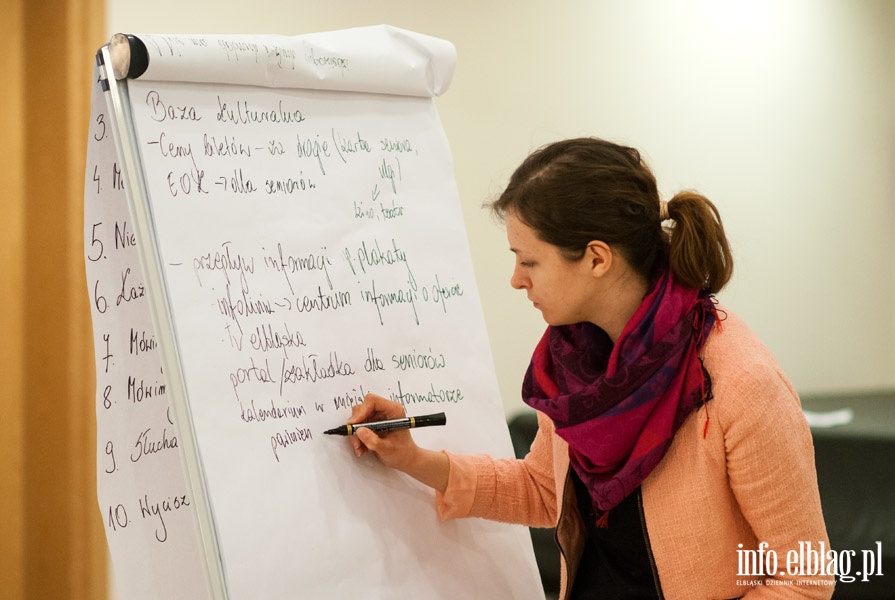 Baza kulturalna
- Ceny biletów - za drogie (karta seniora,
ulgi?
EOK -> dla seniorów
kino, teatr
- przepływ informacji plakaty
infolinia -> centrum informacji o ofercie
TV elbląska
portal/zakładka dla seniorów
kalendarium w miejskim informatorze
powinien
3.
4. M
5. Nie
6. Każ
7. Mówi
8. Mówim
9. Słucha
10. Wycisz
info.elblag.pl
ELBLĄSKI DZIENNIK INTERNETOWY